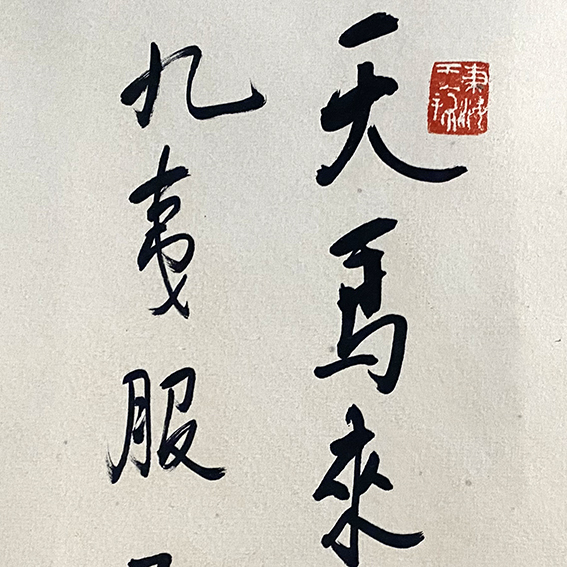 天馬來
九夷服